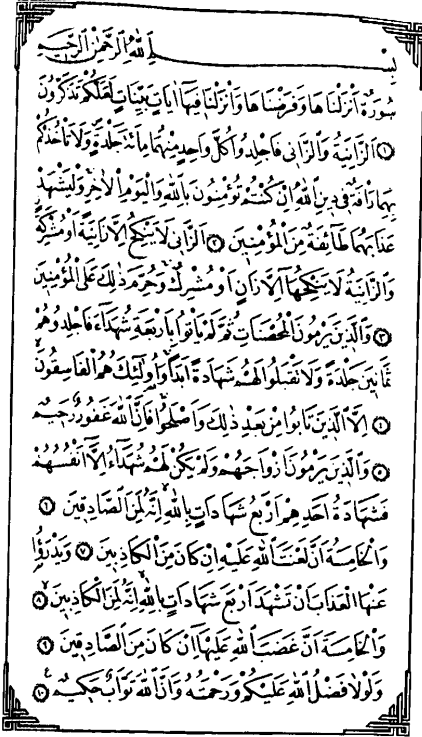 بِسْمِ اللهِ الرَّحْمٰنِ الرَّحِيمِ
سُورَةٌ اَنْزَلْنَاهَا وَفَرَضْنَاهَا وَاَنْزَلْنَا فِيهَا اٰيَاتٍ بَيِّنَاتٍ لَعَلَّكُمْ تَذَكَّرُونَ
١ اَلزَّانِيَةُ وَالزَّانِى فَاجْلِدُوا كُلَّ وَاحِدٍ مِنْهُمَا مِائَةَ جَلْدَةٍ وَلَا تَاْخُذْكُمْ
بِهِمَا رَاْفَةٌ فِى دِينِ اللهِ اِنْ كُنْتُمْ تُؤْمِنُونَ بِاللهِ وَالْيَوْمِ الْاٰخِرِ وَلْيَشْهَدْ
عَذَابَهُمَا طَائِفَةٌ مِنَ الْمُؤْمِنِينَ ٢ اَلزَّانِى لَا يَنْكِحُ اِلَّا زَانِيَةً اَوْ مُشْرِكَةً
وَالزَّانِيَةُ لَا يَنْكِحُهَا اِلَّا زَانٍ اَوْ مُشْرِكٌ وَحُرِّمَ ذٰلِكَ عَلَى الْمُؤْمِنِينَ
٣ وَالَّذِينَ يَرْمُونَ الْمُحْصَنَاتِ ثُمَّ لَمْ يَاْتُوا بِاَرْبَعَةِ شُهَدَاءَ فَاجْلِدُوهُمْ
ثَمَانِينَ جَلْدَةً وَلَا تَقْبَلُوا لَهُمْ شَهَادَةً اَبَدًا وَاُولٰئِكَ هُمُ الْفَاسِقُونَ
٤ اِلَّا الَّذِينَ تَابُوا مِنْ بَعْدِ ذٰلِكَ وَاَصْلَحُوا فَاِنَّ اللهَ غَفُورٌ رَحِيمٌ
٥ وَالَّذِينَ يَرْمُونَ اَزْوَاجَهُمْ وَلَمْ يَكُنْ لَهُمْ شُهَدَاءُ اِلَّا اَنْفُسُهُمْ
فَشَهَادَةُ اَحَدِهِمْ اَرْبَعُ شَهَادَاتٍ بِاللهِ اِنَّهُ لَمِنَ الصَّادِقِينَ ٦
وَالْخَامِسَةُ اَنَّ لَعْنَتَ اللهِ عَلَيْهِ اِنْ كَانَ مِنَ الْكَاذِبِينَ ٧ وَيَدْرَؤُا
عَنْهَا الْعَذَابَ اَنْ تَشْهَدَ اَرْبَعَ شَهَادَاتٍ بِاللهِ اِنَّهُ لَمِنَ الْكَاذِبِينَ ٨
وَالْخَامِسَةَ اَنَّ غَضَبَ اللهِ عَلَيْهَا اِنْ كَانَ مِنَ الصَّادِقِينَ ٩
وَلَوْلَا فَضْلُ اللهِ عَلَيْكُمْ وَرَحْمَتُهُ وَاَنَّ اللهَ تَوَّابٌ حَكِيمٌ ١٠ ع